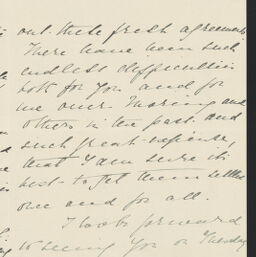 out. these fresh agreements
There have been such
endless difficulties
both for you and for
me over Waring and
others in the past. and
such great expense,
that I am sure its
best to get them settled
once and for all.
I look forward
to seeing you on Tuesday